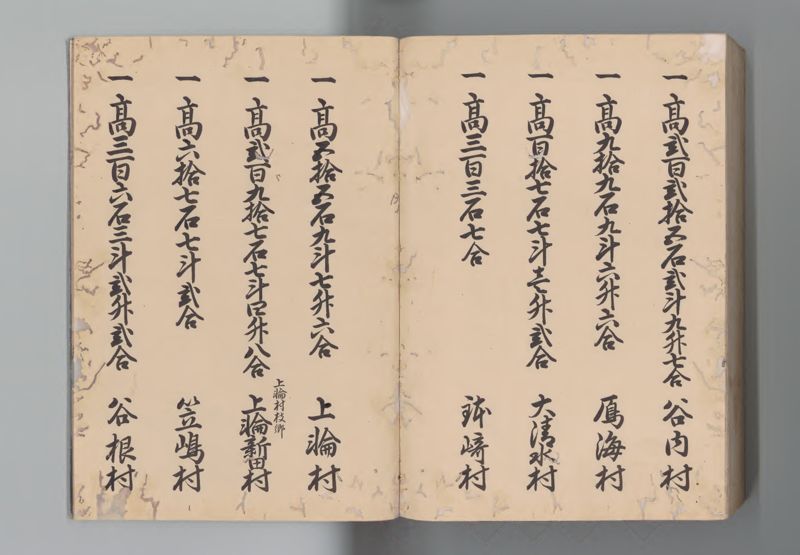 一高弐百弐拾五石弐斗九升七合 谷内村
一高九拾九石九斗六升六合 鴈海村
一高百拾七石七斗壱升弐合 大清水村
一高三百三石七合 鉢崎村
一高五拾五石九斗七升六合 上輪村
上輪村枝郷
一高弐百九拾七石七斗四升八合 上輪新田村
一高六拾七石七斗弐合 笠嶋村
一高三百六石三斗弐升弐合 谷根村